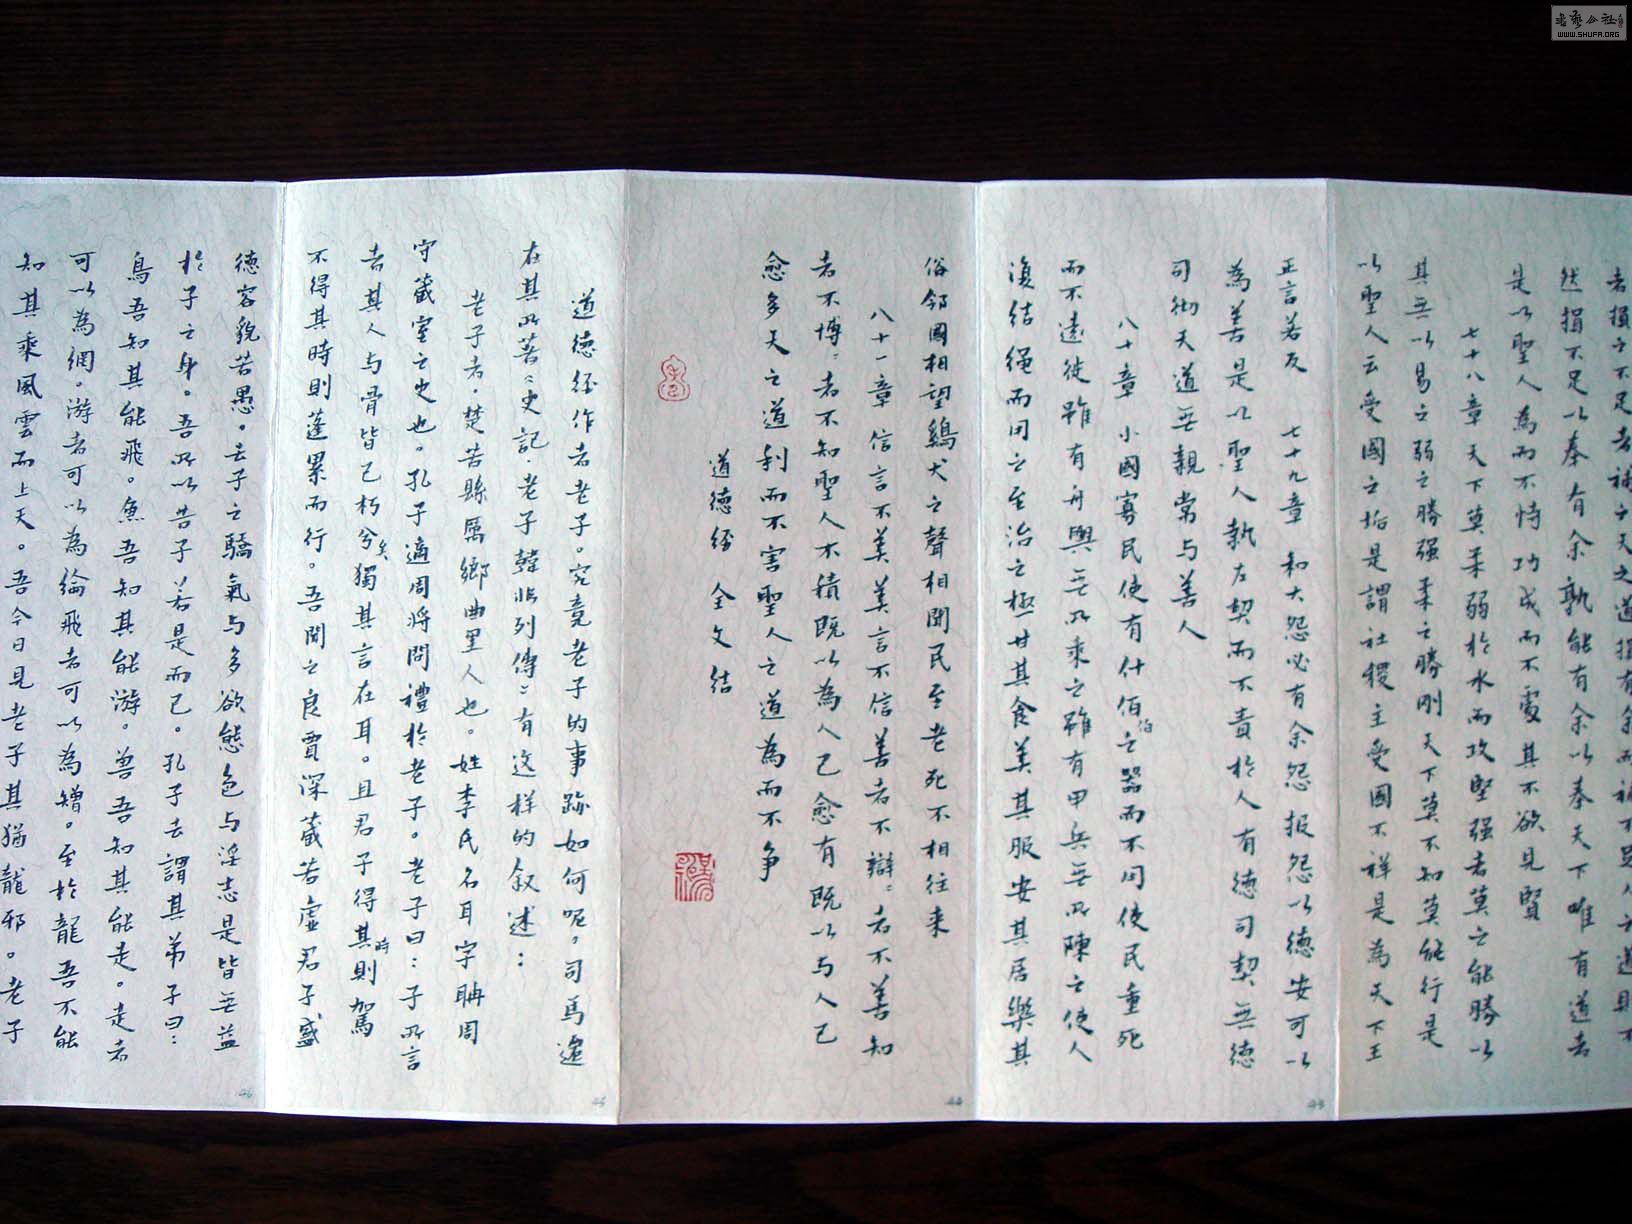 者損之不足者補之天之道損有余而補不足人之道則不
然損不足以奉有余孰能有余以奉天下唯有道者
是以聖人為而不恃功成而不處其不欲見賢
七十八章 天下莫柔弱於水而攻堅強者莫之能勝以
其無以易之弱之勝強柔之勝剛天下莫不知莫能行是
以聖人云受國之垢是謂社稷主受國不祥是為天下王
正言若反 七十九章 和大怨必有余怨報怨以德安可以
為善是以聖人執左契而不責於人有德司契無德
司徹天道無親常与善人
八十章 小國寡民使有什佰伯之器而不用使民重死
而不遠徙雖有舟輿無所乘之雖有甲兵無所陳之使人
復結繩而用之至治之極甘其食美其服安其居樂其
俗邻國相望鷄犬之聲相聞民至老死不相往来
八十一章 信言不美美言不信善者不辯〻者不善知
者不博〻者不知聖人不積既以為人己愈有既以与人己
愈多天之道利而不害聖人之道為而不争
道德经 全文结
道德经作者老子。究竟老子的事跡如何呢,司馬遷
在其所著《史記·老子韓非列傳》有这样的叙述:
老子者。楚苦縣厲鄉曲里人也。姓李氏名耳字聃周
守藏室之史也。孔子適周将問禮於老子。老子曰:子所言
者其人与骨皆已朽兮矣獨其言在耳。且君子得其時則駕
不得其時則蓬累而行。吾聞之良賈深藏若虚君子盛
德容貌若愚。去子之驕氣与多欲態色与淫志是皆無益
於子之身。吾所以告子若是而已。孔子去謂其弟子曰:
鳥吾知其能飛。魚吾知其能游。兽吾知其能走。走者
可以為網。游者可以為綸飛者可以為矰。至於龍吾不能
知其乘風雲而上天。吾今日見老子其猶龍邪。老子
43
44
45
46
書藝公社
WWW.SHUFA.ORG